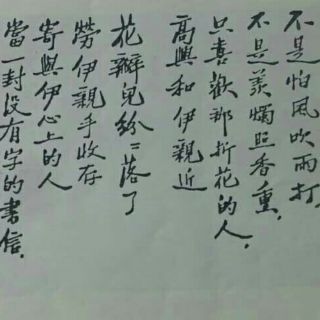 不是怕風吹雨打，
不是羨燭照香熏，
只喜歡那折花的人，
高興和伊親近
花瓣兒紛〻落了
勞伊親手收存
寄與伊心上的人
當一封沒有字的書信，